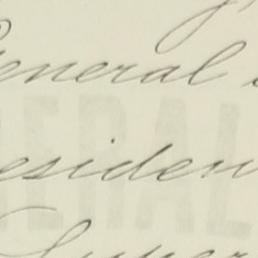 General
esiden
Super
ERAL